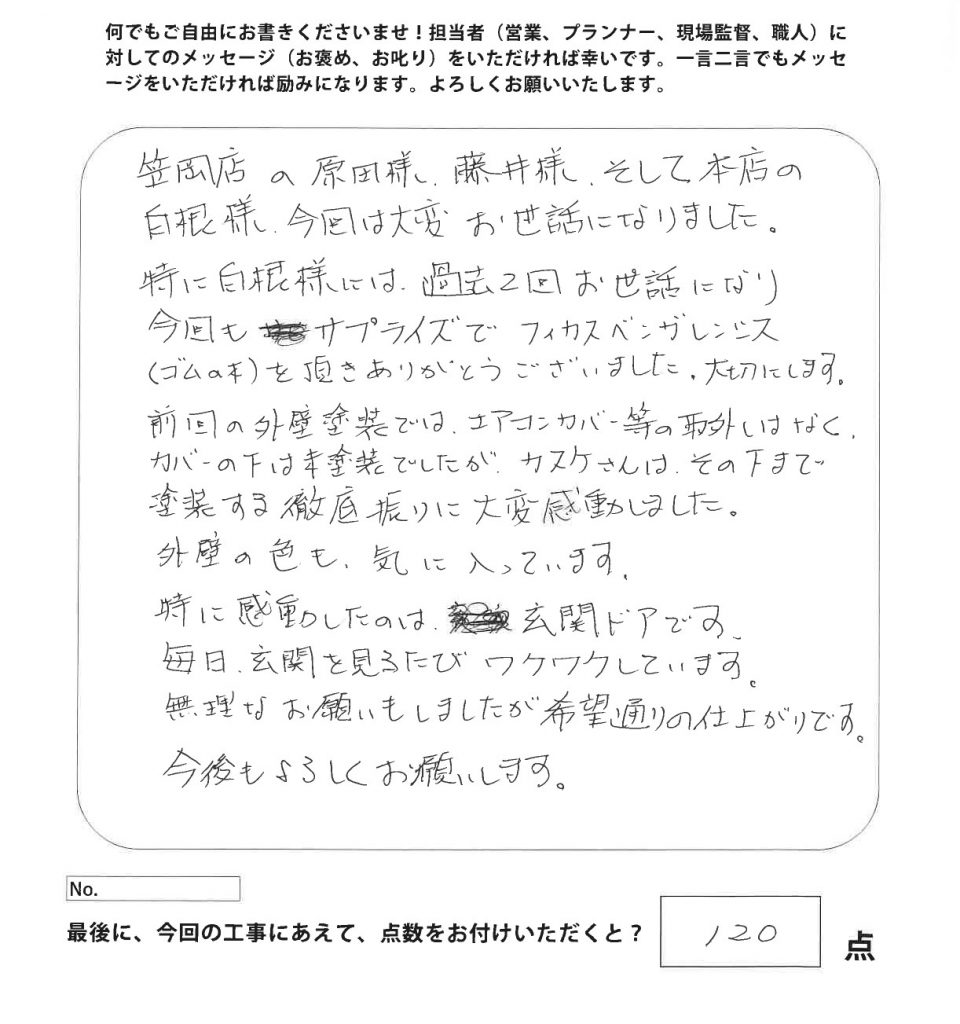 何でもご自由にお書きくださいませ！担当者（営業、プランナー、現場監督、職人）に
対してのメッセージ（お褒め、お叱り）をいただければ幸いです。一言二言でもメッセ
ージをいただければ励みになります。よろしくお願いいたします。
笠岡店の原田様、藤井様、そして本店の
白根様、今回は大変お世話になりました。
特に白根様には、過去2回お世話になり
今回もサプライズでフィカスベンガレンジス
(ゴムの木)を頂きありがとうございました。大切にします。
前回の外壁塗装では、エアコンカバー等の取外しはなく、
カバーの下は未塗装でしたが、カスケさんは、その下まで
塗装する徹底振りに大変感動しました。
外壁の色も、気に入っています。
特に感動したのは、玄関ドアです。
毎日、玄関を見るたびワクワクしています。
無理なお願いもしましたが希望通りの仕上がりです。
今後もよろしくお願いします。
No.
最後に、今回の工事にあえて、点数をお付けいただくと？ 120 点